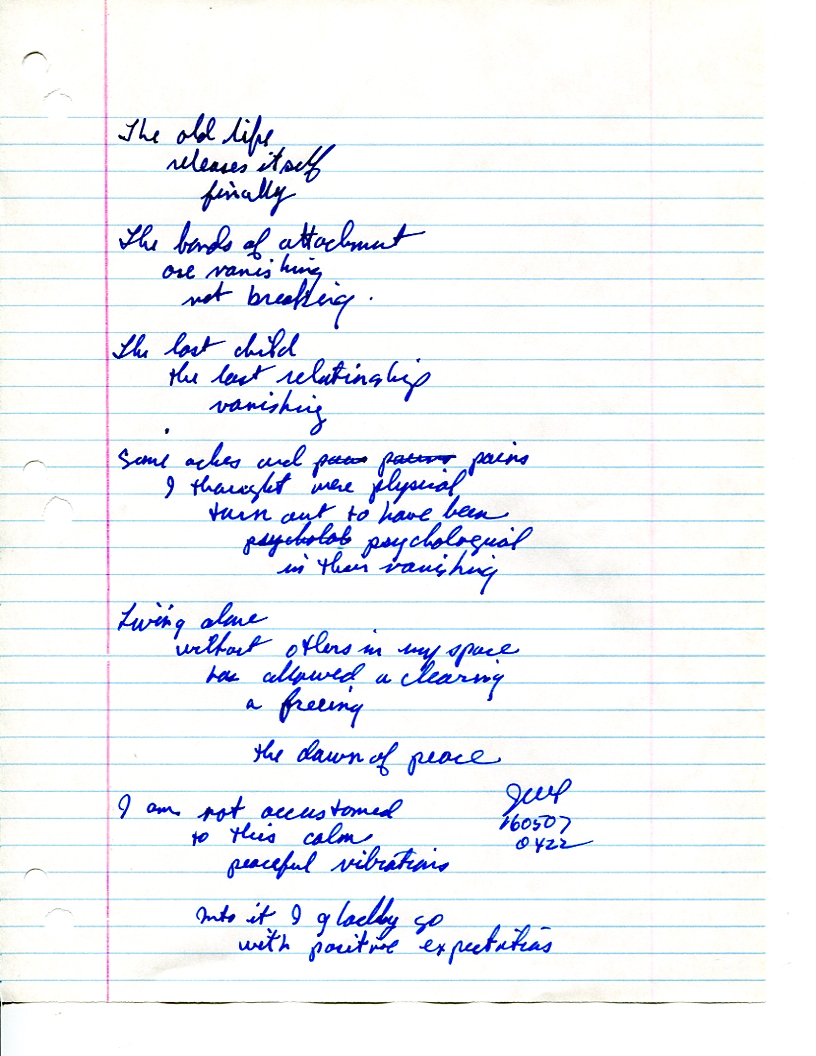 The old life
releases itself
finally
The bonds of attachment
are vanishing
not breaking.
The lost child
the last relationship
vanishing
Some aches and pains
I thought were physical
turn out to have been
psychological
in their vanishing
Living alone
without others in my space
has allowed a clearing
a freeing
the dawn of peace
I am not accustomed
to this calm
peaceful vibrations
160507
0422
Into it I gladly go
with positive expectations